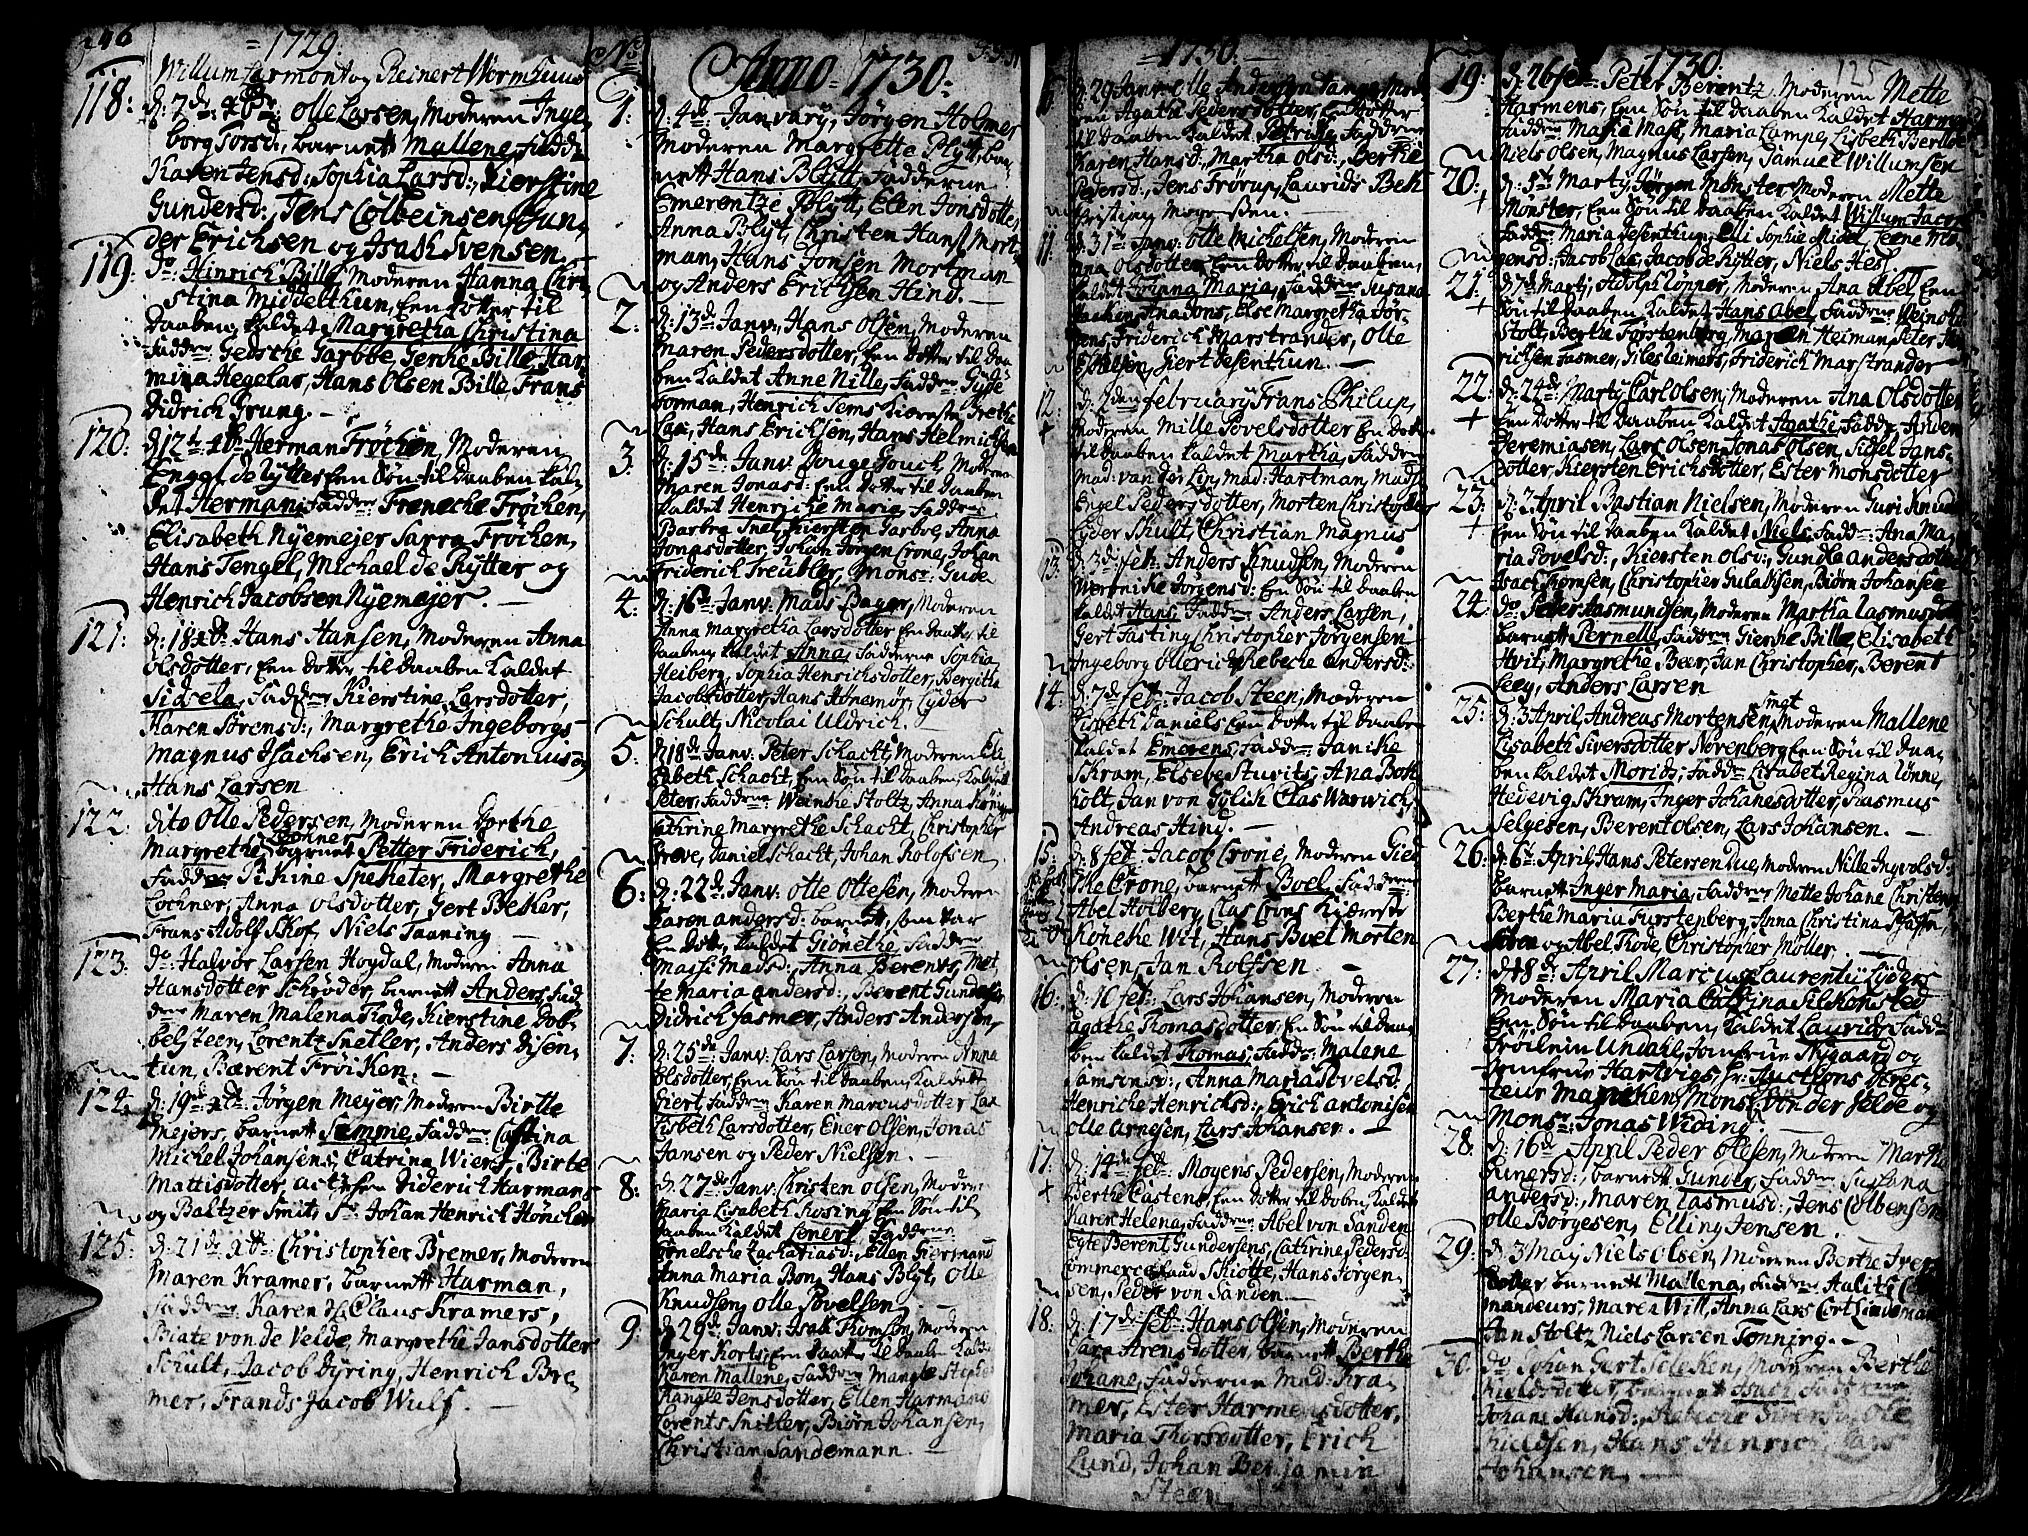 246
1729.
Willum Larmont og Reinert Wormhuus
118: d: 7de xbr: Olle Larsen, Moderen Inge-
borg Torsd:, barnett Mallene, Fadd:
Karen Jensd:, Sophia Larsd:, Kierstine
Gundersd:, Jens Colbeinsen, Gun-
der Erichsen og Isach Svensen
119: do: Hinrich Bille, Moderen Hanna Chri-
stina Middelthun, Een Dotter til
Daaben, kaldet Margretha Christina
Fadderne Gedsche Garbbe, Genke Bille, Har-
mina Hegelar, Hans Olsen Bille, Frans
Didrich Grung.
120: d: 12te xbr Herman Frøchen, Moderen
Engel de Lytter, Een Søn til Daaben kal-
det Herman, Fadderne Franecke Frøchen,
Elisabeth Nyemejer Sarra Frøchen,
Hans Tengel, Michael de Rytter og
Henrich Jacobsen Nyemejer. —
121: d: 18 xbr: Hans Hansen, Moderen Anna
Olsdotter, Een Dotter til Daaben kaldet
Sidsela, Fadderne Kierstine Larsdotter,
Karen Sørensd:, Margrethe Ingeborgs
Magnus Isachsen, Erich Antonius og
Hans Larsen
122: dito Olle Pedersen, Moderen Dorthe
Margrethe Lochner barnet Petter Friderich,
Fadderne Pikine Speketer, Margrethe
Lochner, Anna Olsdotter, Gert Beker,
Frans Adolf Skof, Niels Taaning —
123: do: Halvor Larsen Høydal, Moderen Anna
Hansdotter Schrøder, barnett Anders, Fad-
derne Maren Malena Tode, Kierstine Dob-
belsteen, Lorentz Snetler, Anders Disen-
tun, Bærent Frøiken. —
124: d: 19de xbr: Jørgen Meyer, Moderen Birtte
Mejers, barnett Semme, Fadderne: Catrina
Michel Johansens, Catrina Wiers, Birte
Mattisdotter, Diderich Harmans
og Baltzer Smit, Sr: Johan Henrich Høncker
125: d: 21de xbr: Christopher Bremer, Moderen
Maren Kramer, barnett Harman,
Fadderne: Karen Sl: Claus Kramers,
Biate von de Velde, Margrethe Jansdotter
Schult, Jacob Dyring, Henrich Bre-
mer, Frands Jacob Wulf. —
No:
Anno 1730:
1: d: 4de January, Jørgen Holmer
Moderen Margretta Blyt, bar-
nett Hans Blytt, Fadderne
Emerentze Blytt, Elen Jonsdotter,
Anna Blyt, Christen Hans Mort-
man, Hans Jonsen Mortman
og Anders Erichsen Hind. —
2: d: 13de Janv:, Hans Olsen, Moderen
Maren Pedersdotter, Een Dotter til Daa-
ben kaldet Anne Nille, Fadderne Gude
Forman, Henrich Sems Kiereste, Grethe
Lax, Hans Erichsen, Hans Helmichsen
3: d: 15de Janv: Douge Gouck, Moderen
Maren Jonasd: Een Dotter til Daaben
kaldet Henriche Maria, Fadderne
Barbra Snel, Kiersten Garbve, Anna
Jonasdotter, Johan Jørgen Crone, Johan
Friderich Treubler, Monsr: Gude
4: d: 16de Janv: Mads Bager, Moderen
Anna Margretha Larsdotter Een Daatter til
Daaben kaldet Anna, Fadderne Sophia
Heiberg, Sophia Henrichsdotter, Bergitta
Jacobsdotter, Hans Honemør, Lyder
Schult, Nicolai Uldrich. —
5: d: 18de Janv: Peter Schacht, Moderen Eli-
sabeth Schacht, Een Søn til Daaben, kaldet
Peter, Fadderne Weinke Stoltz, Anna König
Cathrine Margrethe Schacht, Christopher
Greve, Daniel Schacht, Johan Rolofsen
6: d: 22de Janv: Otte Ottesen, Moderen
Karen Andersd: barnet, som var
En Dotter, kaldet Giønethe, Fadderne
Massi Madsd:, Anna Berents, Met-
te Maria Andersd:, Berent Gundersen
Didrich Jasmer, Anders Andersen,
7: d: 25de Janv: Lars Larsen, Moderen Anna
Olsdotter, Een Søn til Daaben kaldet
Giert, Fadderne Karen Marcusdotter Lax
Lisbeth Larsdotter, Ener Olsen, Jonas
Jansen og Peder Nielsen. —
8: d: 27de Janv: Christen Olsen, Moder
Maria Lisabeth Rosing, Een Søn til
Daaben kaldet Lenert, Fadderne
Zachariasd:, Ellen Fiermand
Anna Maria Bon, Hans Blyt, Olle
Knudsen, Olle Povelsen. —
9: d: 29de Janv: Isak Thomsen, Moderen
Inger Korts, Een Daatter til Daaben kaldet
Karen Mallene, Fadderne Mangle Steph
Mangle Jensdotter, Ellen Harmand
Lorents Snitler, Biørn Johansen,
Christian Sandemann. —
1730. —
d: 29 Janv: Olle Andersen Tange, Mod-
eren Agata Pedersdotter, En Dotter
til Daaben kaldet Petrica, Fadderne
Karen Hansd:, Martha Olsd:, Berthe
Pedersd:, Jens Trørup, Laurids Bek
Christian Mogensen. —
11: d: 31te Janv: Otte Michelsen, Moderen
Anna Olsdotter, Een Dotter til Daaben,
kaldet Anna Maria, Fadderne Susana
Jachin, Ana Jons, Else Margretha Jør-
gens, Friderich Marstrander, Olle
Eskelsen, Giert Desenthun. —
12: d: 2den February Frans Philup,
Moderen Mille Povelsdotter En Dotter
til Daaben kaldet Martha, Fadderne
Mad: van der Lip, Mad: Hartman, Mads:
Engel Pedersdotter, Morten Christopher
Lyder Skult, Christian Magnus
13: d: 3de feb: Anders Knudsen, Moderen
Weronike Jørgensd: En Søn til Daaben
kaldet Hans, Fadderne Anders Larsen,
Gert Fasting, Christopher Jørgensen
Ingeborg Ollerie Rebeche Andersd:
14: d: 7de feb: Jacob Steen, Moderen
Lisbeth Daniels, Een Dotter til Daaben
kaldet Emerens, Fadderne Janike
Skram, Elsebe Sturits, Ana Bok-
holt, Jan von Gylik, Clas Warwich,
Andreas Hind. —
15: d: 8 feb: Jacob Crone, Moderen Gied-
ske Crone, barnett Boel, Fadderne:
Abel Holberg, Clas Crons Kiæreste
Køneke Wit, Hans Boel Morten
Olsen, Jan Rolfsen —
16: d: 10 feb: Lars Johansen, Moderen
Agathe Thomasdotter, En Søn til Daa-
ben kaldet Thomas, Fadd: Malene
Samsonsd:, Anna Maria Povelsd:
Henriche Henricksd:, Erich Antonisen
Olle Arnesen, Lars Johansen. —
17: d: 14de feb: Moyens Pedersen, Moderen
Berthe Castens, Een Dotter til Daaben kaldet
Karen Helena, Fadderne Abel von Sanden
Eyte Berent Gundersens, Cathrine Pedersd:
Commerceraad Skiotte, Hans Jørgen-
sen, Peder von Sanden. —
18: d: 17de feb: Hans Olsen, Moderen
Sara Arensdotter, barnett Berthe
Johane, Fadderne Mad: Kra-
mer, Ester Harmensdotter,
Maria Thorsdotter, Erich
Lund, Johan Benjamin
Steen
1730.
125
19: d: 26 feb: Peter Berentz, Moderen Mette
Harmens, Een Søn til Daaben kaldet Harmen
Fadderne Maria Mass, Maria Lampe, Lisbeth Bertlde
Niels Olsen, Magnus Larsen, Samuel Willumsen
20: d: 5te Marty, Jørgen Mønster, Moderen Mette
Mønster, Een Søn til Daaben kaldet Willum Jacob
Fadderne Maria Desenthun, Elli Sophie Midel, Leene Mo-
gensd:, Jacob Lax, Jacob de Rytter, Niels Hesl
21: d: 7de Marty, Adolph Tønner, Moderen Ana Abel, Een
Søn til Daaben kaldet Hans Abel, Fadderne: Weinche
Stolt, Berthe Førstenberg, Maren Heiman, Peter Hen-
richsen Jasmer, Friderich Marstrander
22: d: 24de Marty Carl Olsen, Moderen Ana Olsdotter
Een Dotter til Daaben kaldet Agathe, Fadd: Anders
Jeremiasen, Lars Olsen, Jonas Olsen, Sidsel Jans-
dotter Kiersten Erichsdotter, Ester Monsdotter
23: d: 2 April Bastian Nielsen, Moderen Guri Knuds
Een Søn til Daaben kaldet Niels, Fadd: Ana Ma-
ria Povelsd:, Kiersten Olsd:, Gunele Andersdotter
Isach Thomsen, Christopher Gulaksen, Biørn Johansen
24: do Peder Rasmundsen, Moderen Martha Rasmusd:
barnett Pernelle, Fadderne Gierthe Bille, Elisabeth
Hvit, Margrethe Beer, Jan Christopher, Berent
Leey, Anders Larsen
25: d: 3 April, Andreas Mortensen Smit, Moderen Mallene
Lisabeth Siversdotter Nørenberg Een Søn til Daa-
ben kaldet Morids, Fadderne Lisabet Regina Lønne,
Hedevig Skram, Inger Johanesdotter, Rasmus
Selgesen, Berent Olsen, Lars Johansen. —
26: d: 6te April, Hans Petersen Due, Moderen Nille Ingvolsd:
barnett Inger Maria, Fadderne Mette Johane Christens
Berthe Maria Furstenberg, Anna Christina Pfaffen,
og Abel Tode Christopher Møller. —
27: d: 18de: April Marcus Laurenty Lyders
Moderen Maria Catrina Silkonsted
Een Søn til Daaben, kaldet Laurids, Fadd:
Frøilein Undahl, Jomfrue Nygaard og
Jomfrue Hartvigs, Hr: Auctions Direc-
teur Mancken, Monsr: von der Velde og
Monsr: Jonas Widing. —
28: d: 16de April Peder Olesen, Moderen Marthe
Gunersd:, barnett Gunder, Fadderne Susana
Andersd:, Maren Rasmusd:, Jens Colbensen
Olle Børgesen, Elling Jensen.
29: d: 3 May Niels Olsen, Moderen Berthe Iver-
dotter barnett Mallena, Fadderne Aalits Com-
mandeurs, Maren Will, Anna Lars Cort Lindeman
Jan Stoltz Niels Larsen Tønning. —
30: do Johan Gert Seleken, Moderen Berthe
Kieldsdotter, barnett Isach, Fadderne
Johane Hansd:, Rebecke Olle
Kieldsen, Hans Henrich, Lars
Johansen. —